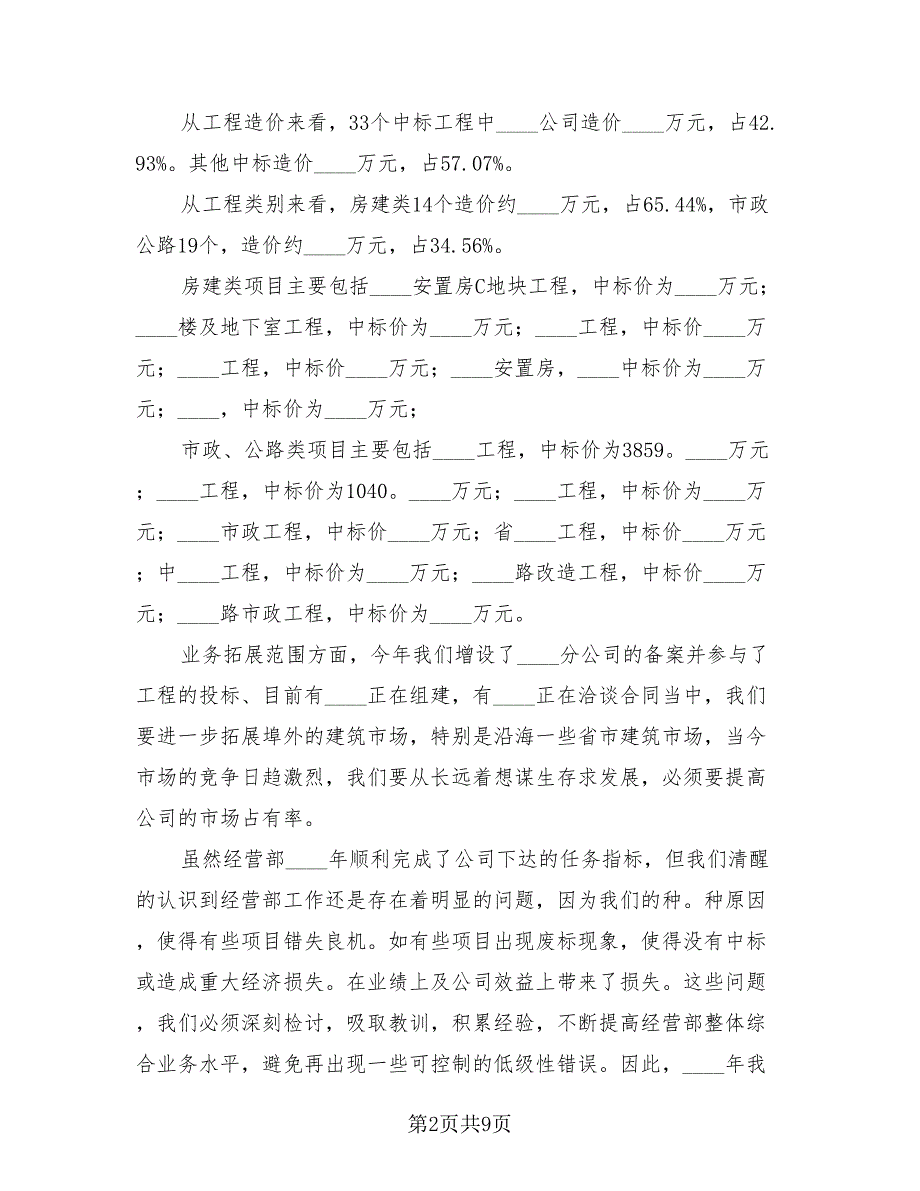 从工程造价来看，33个中标工程中____公司造价____万元，占42.
93%。其他中标造价____万元，占57.07%。
从工程类别来看，房建类14个造价约____万元，占65.44%，市政
公路19个，造价约____万元，占34.56%。
房建类项目主要包括____安置房C地块工程，中标价为____万元；
____楼及地下室工程，中标价为____万元；____工程，中标价____万
元；____工程，中标价____万元；____安置房，____中标价为____万
元；____，中标价为____万元；
市政、公路类项目主要包括____工程，中标价为3859。____万元
；____工程，中标价为1040。____万元；____工程，中标价为____万
元；____市政工程，中标价____万元；省____工程，中标价____万元
；中____工程，中标价为____万元；____路改造工程，中标价____万
元；____路市政工程，中标价为____万元。
业务拓展范围方面，今年我们增设了____分公司的备案并参与了
工程的投标、目前有____正在组建，有____正在洽谈合同当中，我们
要进一步拓展埠外的建筑市场，特别是沿海一些省市建筑市场，当今
市场的竞争日趋激烈，我们要从长远着想谋生存求发展，必须要提高
公司的市场占有率。
虽然经营部____年顺利完成了公司下达的任务指标，但我们清醒
的认识到经营部工作还是存在着明显的问题，因为我们的种。种原因
，使得有些项目错失良机。如有些项目出现废标现象，使得没有中标
或造成重大经济损失。在业绩上及公司效益上带来了损失。这些问题
，我们必须深刻检讨，吸取教训，积累经验，不断提高经营部整体综
合业务水平，避免再出现一些可控制的低级性错误。因此，____年我
第2页共9页